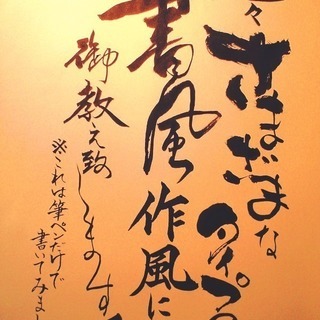 々さまざまなタイプの
書風作風に
御教え致します
※これは筆ペンだけで
書いてみまし